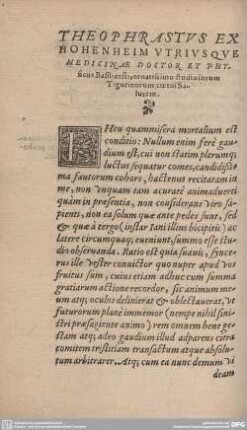 THEOPHRASTVS EX
HOHENHEIM VTRIVSQVE
MEDICINÆ DOCTOR ET PHY-
sicus Basiliensis, ornatissimo studiosorum
Tigurinorum cœtui Sa-
lutem.
EHeu quam misera mortalium est
conditio: Nullum enim ferè gau-
dium est, cui non statim plerumq;
luctus sequatur comes, candidissi-
ma fautorum cohors, hactenus recitatam in
me, non vnquam tam acuratè animaduerti
quàm in præsentia, non considerans viro sa-
pienti, non ea solum quæ ante pedes sunt, sed
& quæ à tergo (instar Iani illius bicipiti) ac
latere circumquaq; eueniunt, summo esse stu-
dio obseruanda. Ratio est quia suauis, since-
rus ille vester conuictor quo nuper apud vos
fruitus sum, cuius etiam adhuc cum summa
gratiarum actione recordor, sic animum me-
um atq; oculos delinierat & oblectauerat, vt
futurorum planè immemor (nempe nihil sini-
stri præsagiente animo) rem omnem bene ge-
stam atq; adeo gaudium illud adparens citra
comitem tristitiam transactum atque absolu-
tum arbitrarer. Atq; cum ea nunc demum vi
deam